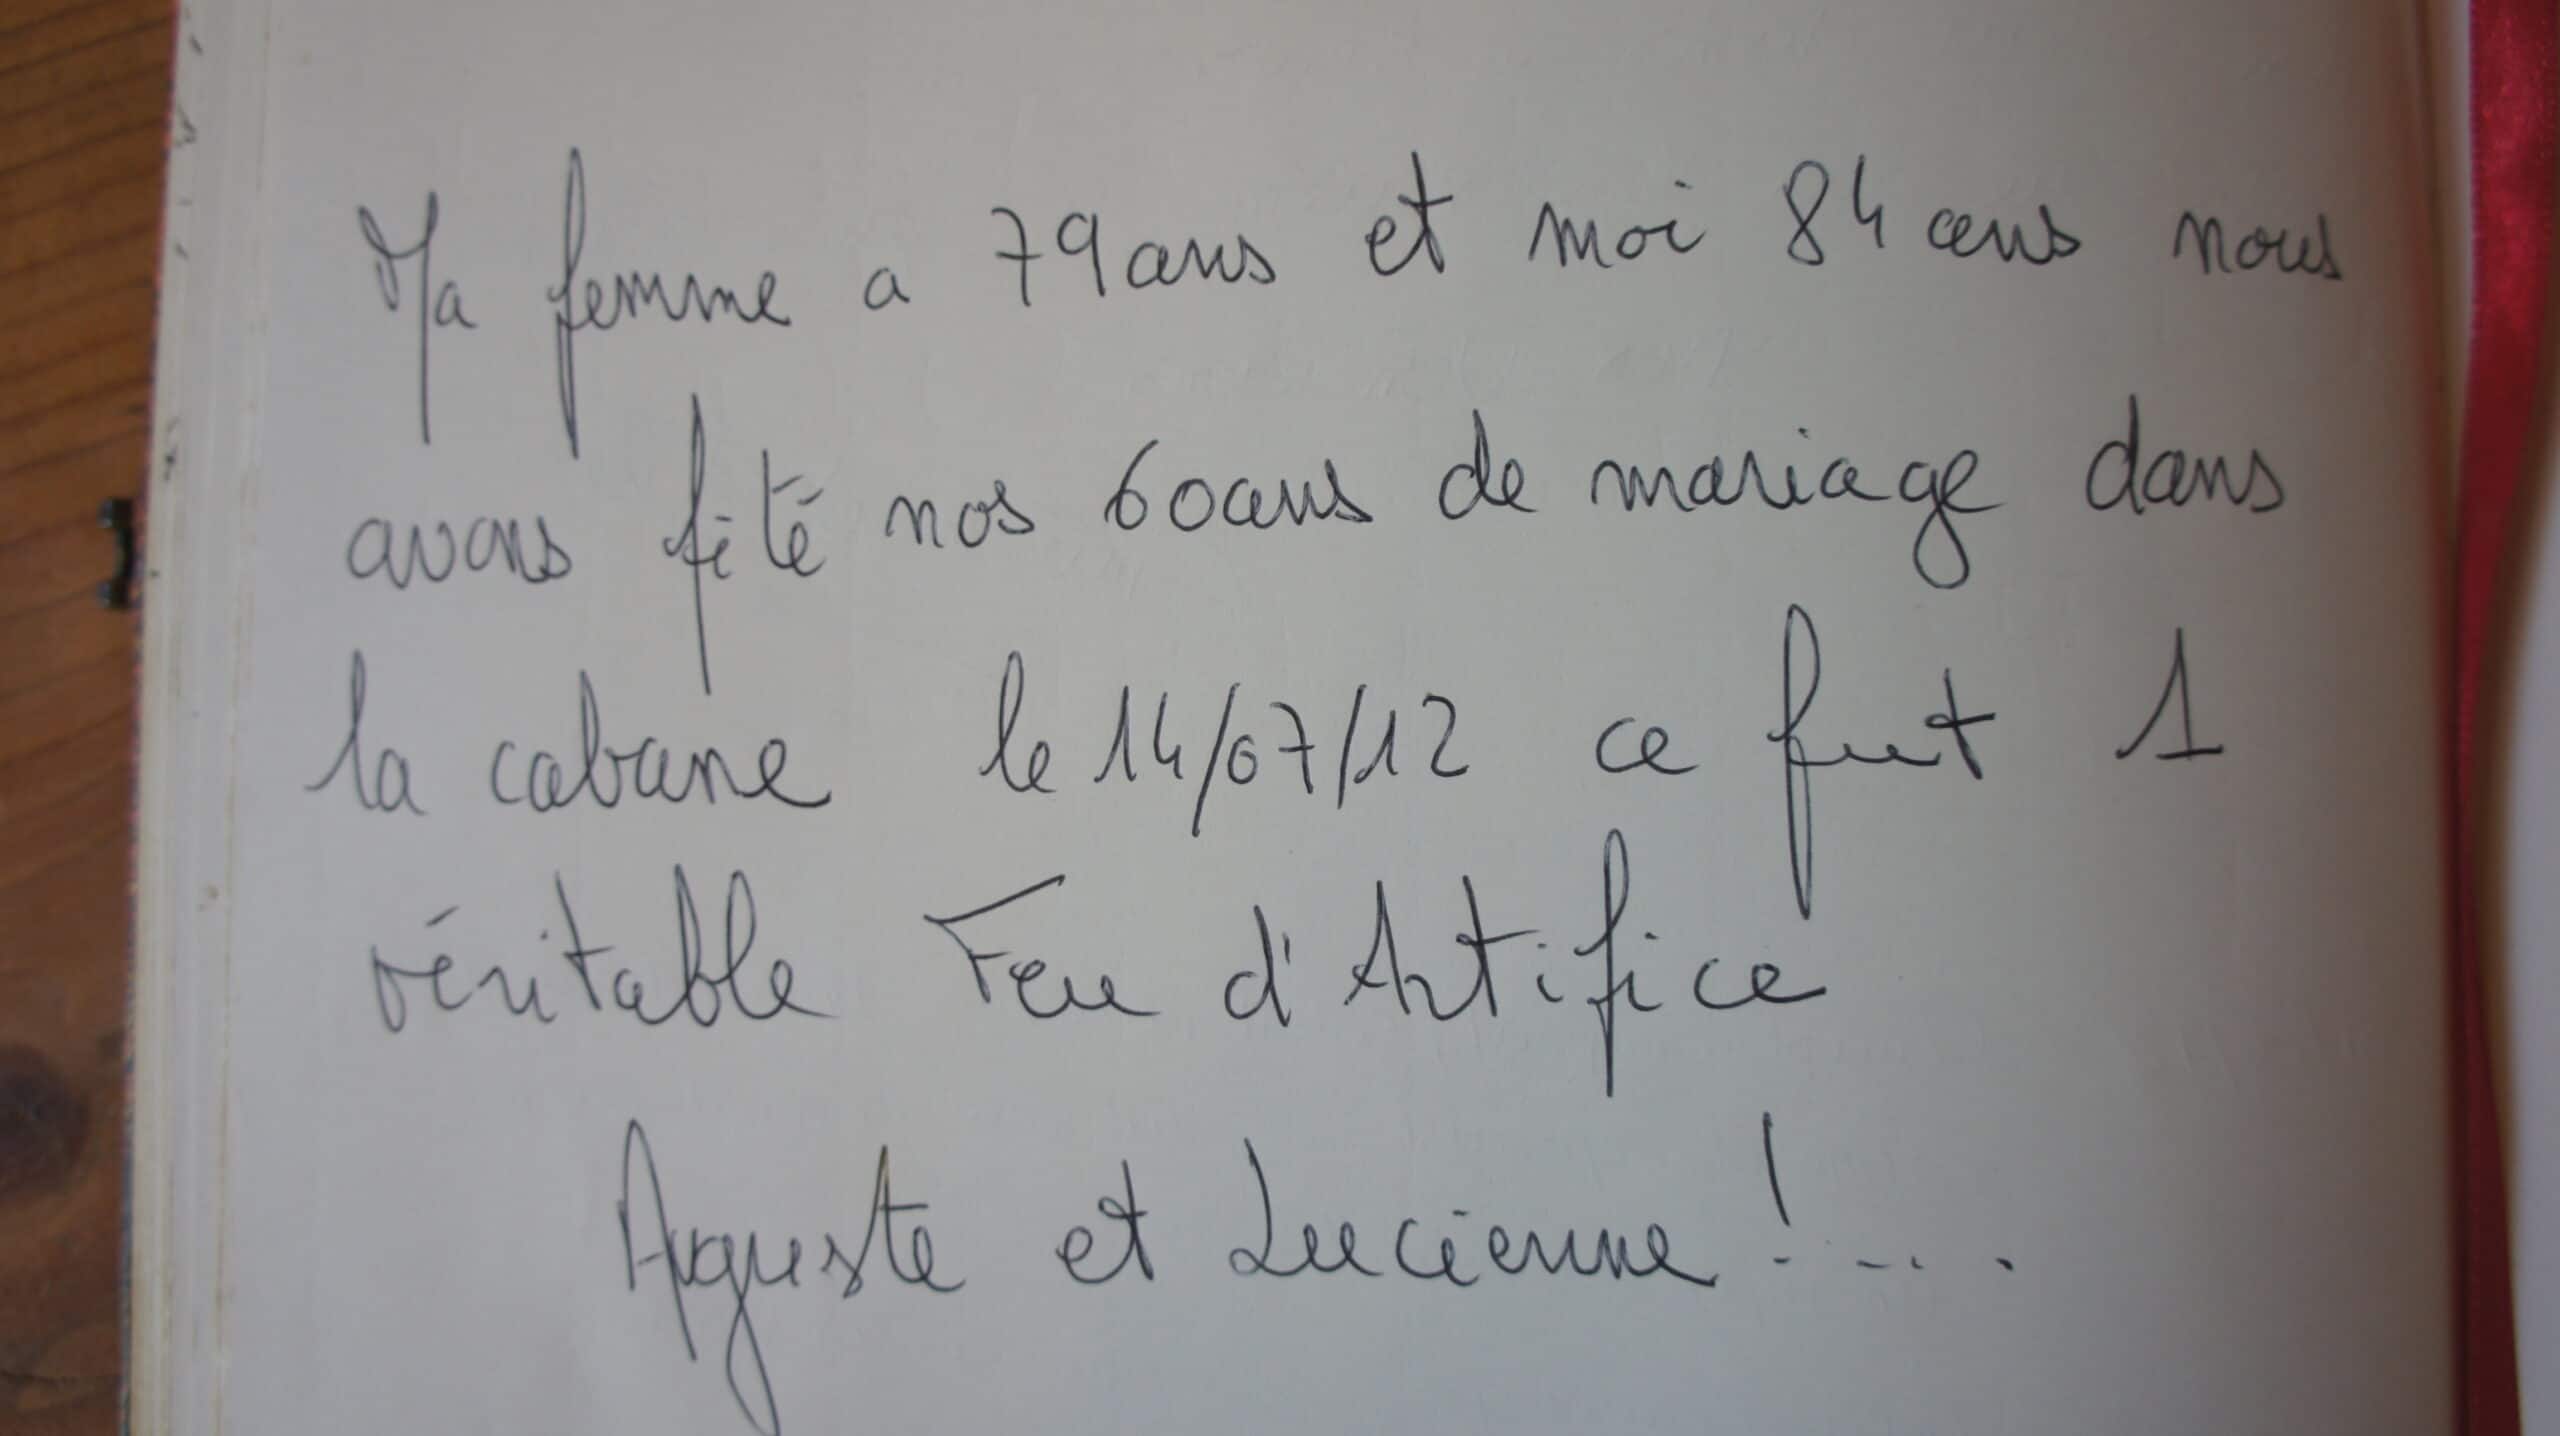 Ma femme a 79 ans et moi 84 ans nous
avons fêté nos 60 ans de mariage dans
la cabane le 14/07/12 ce fut 1
véritable Feu d'Artifice
Auguste et Lucienne !....